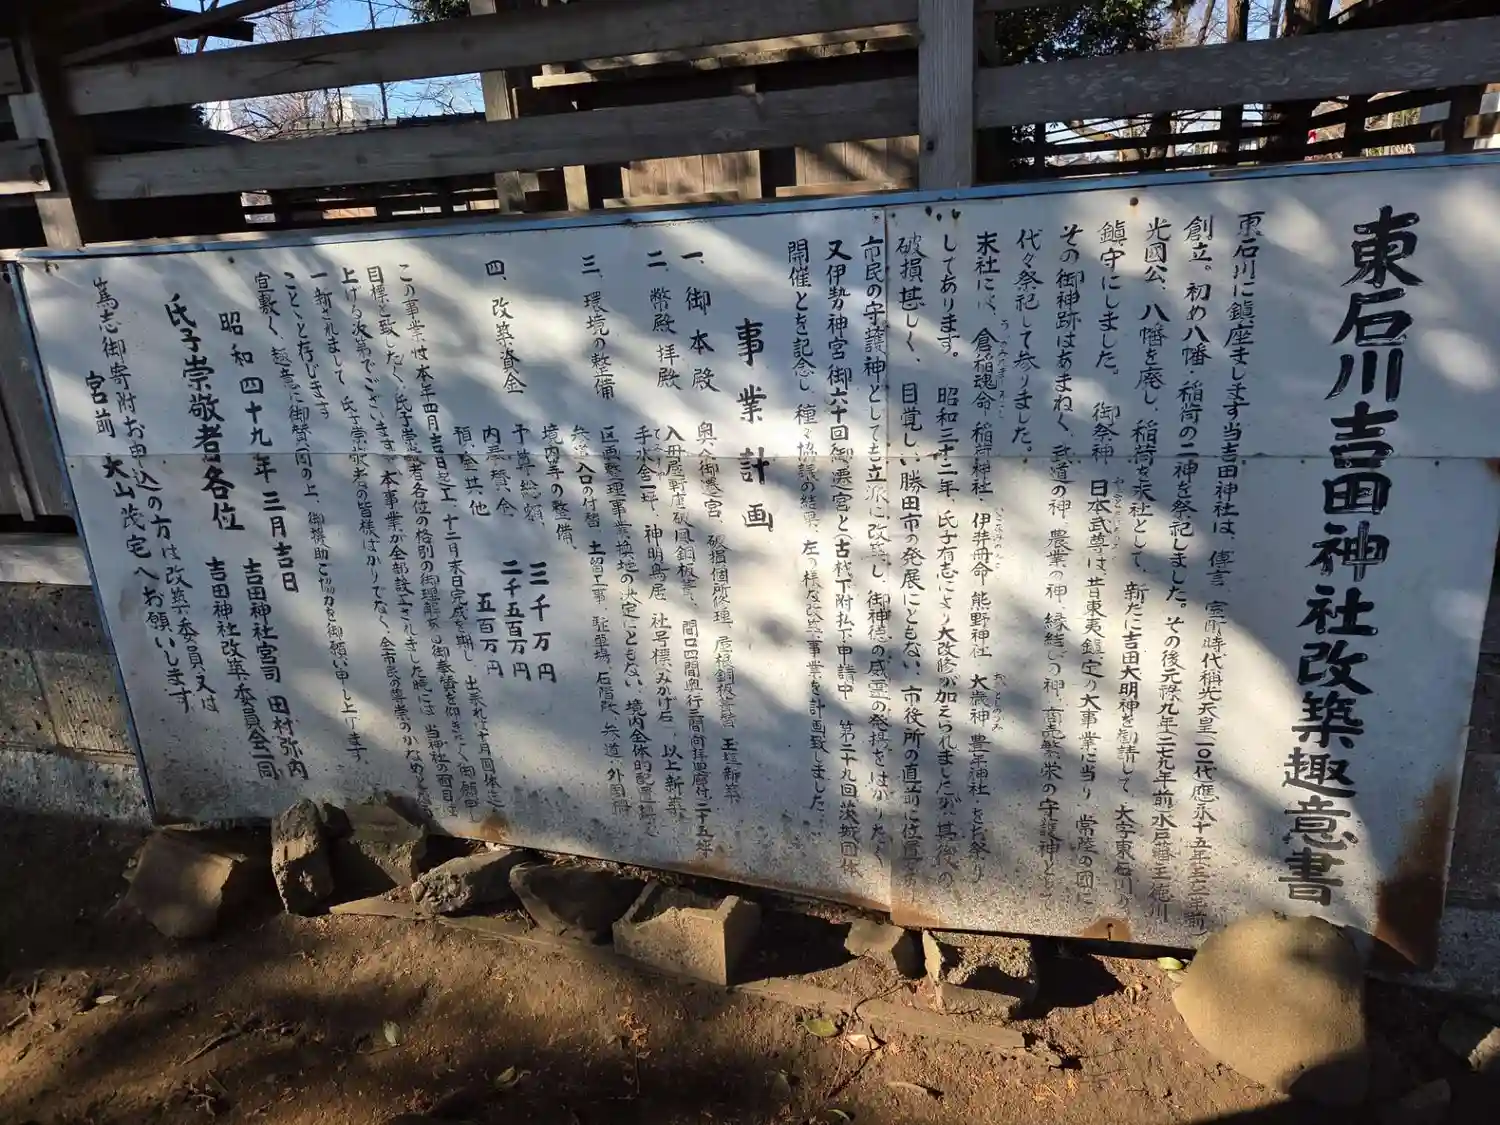 東石川吉田神社改築趣意書
東石川に鎮座まします当吉田神社は、傳言、室町時代稱光天皇一〇一代應永十五年五七〇年前
創立。初め八幡、稲荷の二神を祭祀しました。その後元禄九年二七九年前水戸藩主徳川
光圀公、八幡を廃し、稲荷を末社として、新たに吉田大明神を勧請して、大字東石川の
鎮守にしました。 御祭神 日本武尊は昔東夷鎮定の大事業に当り 常陸の國に
その御神跡はあまねく、武道の神、農業の神、縁結びの神、商売繁栄の守護神として
代々祭祀して参りました。
末社には、倉稲魂命 稲荷神社、伊弉冊命 熊野神社、大歳神 豊年神社、をお祭り
してあります。 昭和三十二年、氏子有志により大改修が加えられましたが、其後の
破損甚しく、目覚しい勝田市の発展にともない、市役所の直前に位置する
市民の守護神としても立派に改築し、御神徳の威霊の発揚をはかりたく
又伊勢神宮御六十回御遷宮と(古材下附払下申請中) 第二十九回茨城国体
開催とを記念し、種々協議の結果、左の様な改築事業を計画致しました。
事業計画
一、御本殿 奥へ御遷宮、破損個所修理、屋根銅板葺替 玉垣新築
二、幣殿拝殿 入母屋軒唐破風銅板葺、間口四間奥行三間向拝面廊付、二十五坪
手水舎一坪、神明鳥居、社号標(みかげ石)、以上新築
三、環境の整備 区画整理事業、換地の決定にともない、境内全体的配置構成
参道入口の付替、土留工事、駐車場、石階段、参道、外囲柵
境内等の整備、
四、改築資金 予算総額、 三千万円
内寄賛金、 二千五百万円
預金其、他 五百万円
この事業は本年四月吉日起工、十二月末日完成を期し 出来れば十月国体迄
目標と致したく、氏子崇敬者各位の格別の御理解ある御奉讃を仰ぎたく御願申し
上げる次第でございます。本事業が全部竣工されました時には 当神社の面目は
一新されまして、氏子崇敬者の皆様ばかりでなく、全市民の尊崇のかなめとなる
ことゝと存じます
宜敷く、趣意に御賛同の上、御援助と協力を御願い申し上げます
昭和四十九年三月吉日
吉田神社宮司 田村弥内
氏子崇敬者各位 吉田神社改築委員会一同
篤志御寄附お申込の方は改築委員又は
宮前 大山茂宅へお願いします